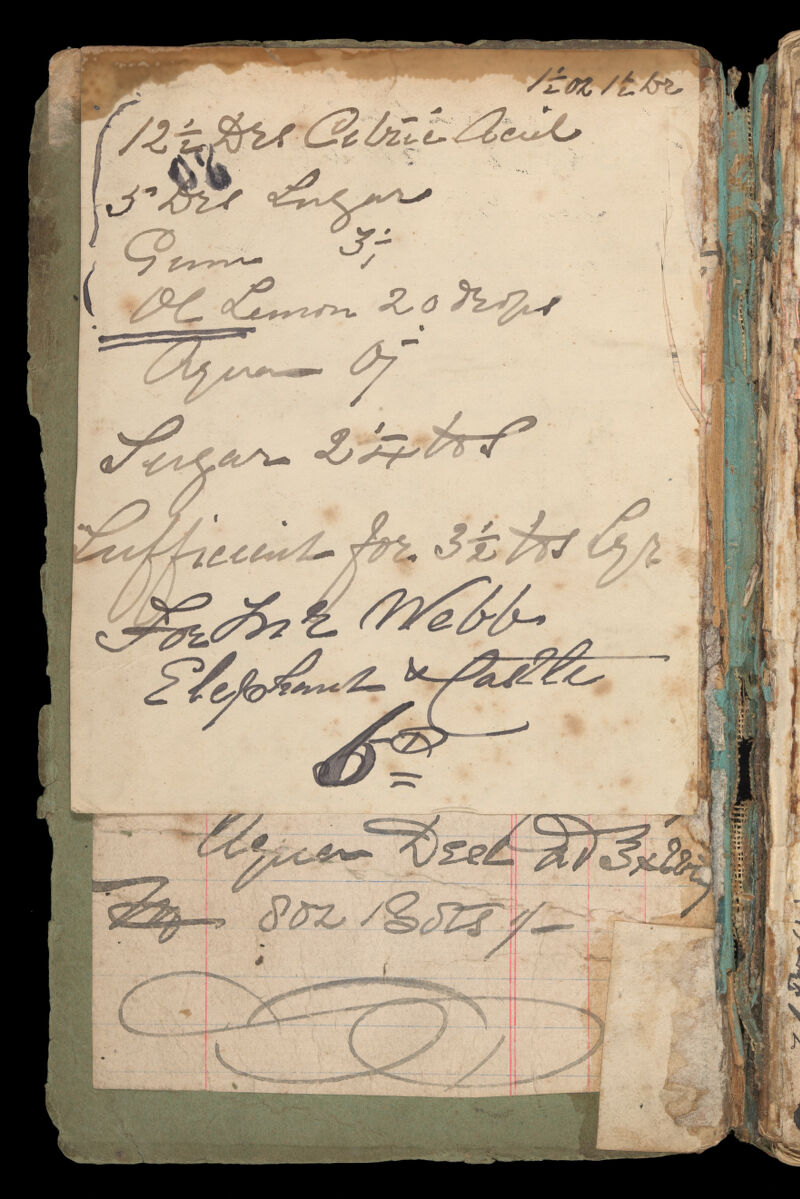 1½ oz 1½ Dr
12½ Drs Citric Acid
oz
5 Drs Sugar
Gum ʒj
Ol Lemon 20 drops
Aqua Oj
Sugar 2¼ lbs
Sufficient for 3½ lbs Syr
For Mr Webb
Elephant & Castle
6D
Aqua Dest ad ʒx
8oz Bots 1/-